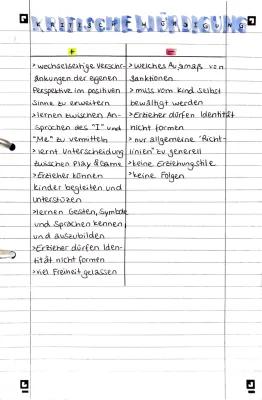 KRITISCHE WÜRDIGUNG
+
> wechselseitige Verschr-
änkungen der eigenen
Perspektive im positiven
Sinne zu erweitern
> lernen zwischen An-
sprüchen des "I" und
"Me" zu vermitteln
> lernt Unterscheidung
zwischen Play & Game
> Erzieher können
Kinder begleiten und
unterstüzen
> lernen Gesten, Symbole
und Sprachen kennen
und auszubilden
> Erzieher dürfen Iden-
tität nicht formen
> viel Freiheit gelassen
-
> welches Ausmaß von
Sanktionen
> muss vom Kind selbst
bewältigt werden
> Erzieher dürfen Identität
nicht formen
> nur allgemeine "Richt-
linien" zu generell
> keine Erziehungsstile
> keine Folgen